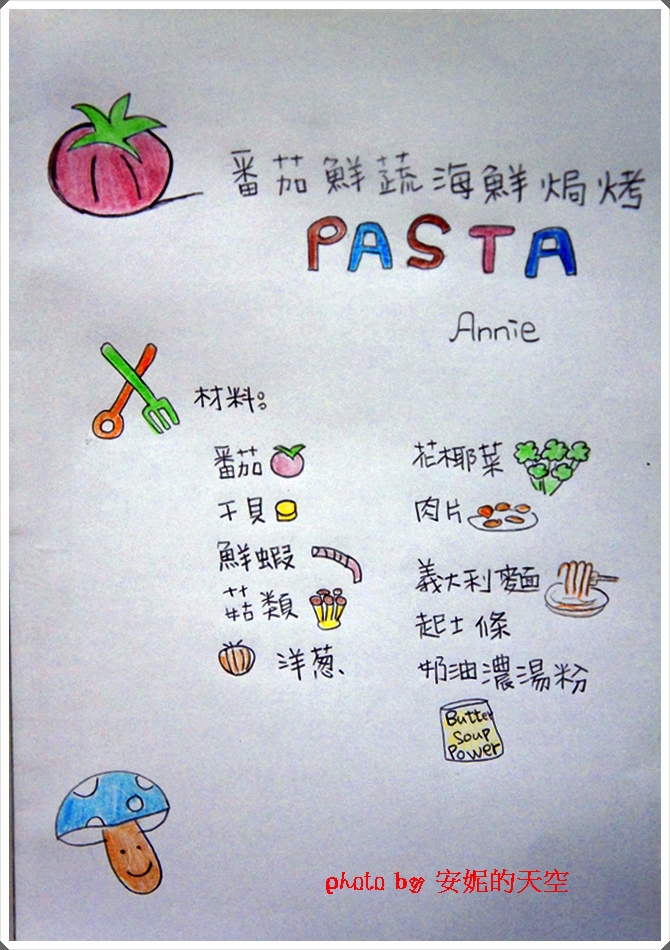 番茄鮮蔬海鮮焗烤
PASTA
Annie
材料:
番茄
干貝
鮮蝦
菇類
洋葱、
花椰菜
肉片
義大利麵
起士條
奶油濃湯粉
Butter
Soup
Power
photo by 安妮的天空